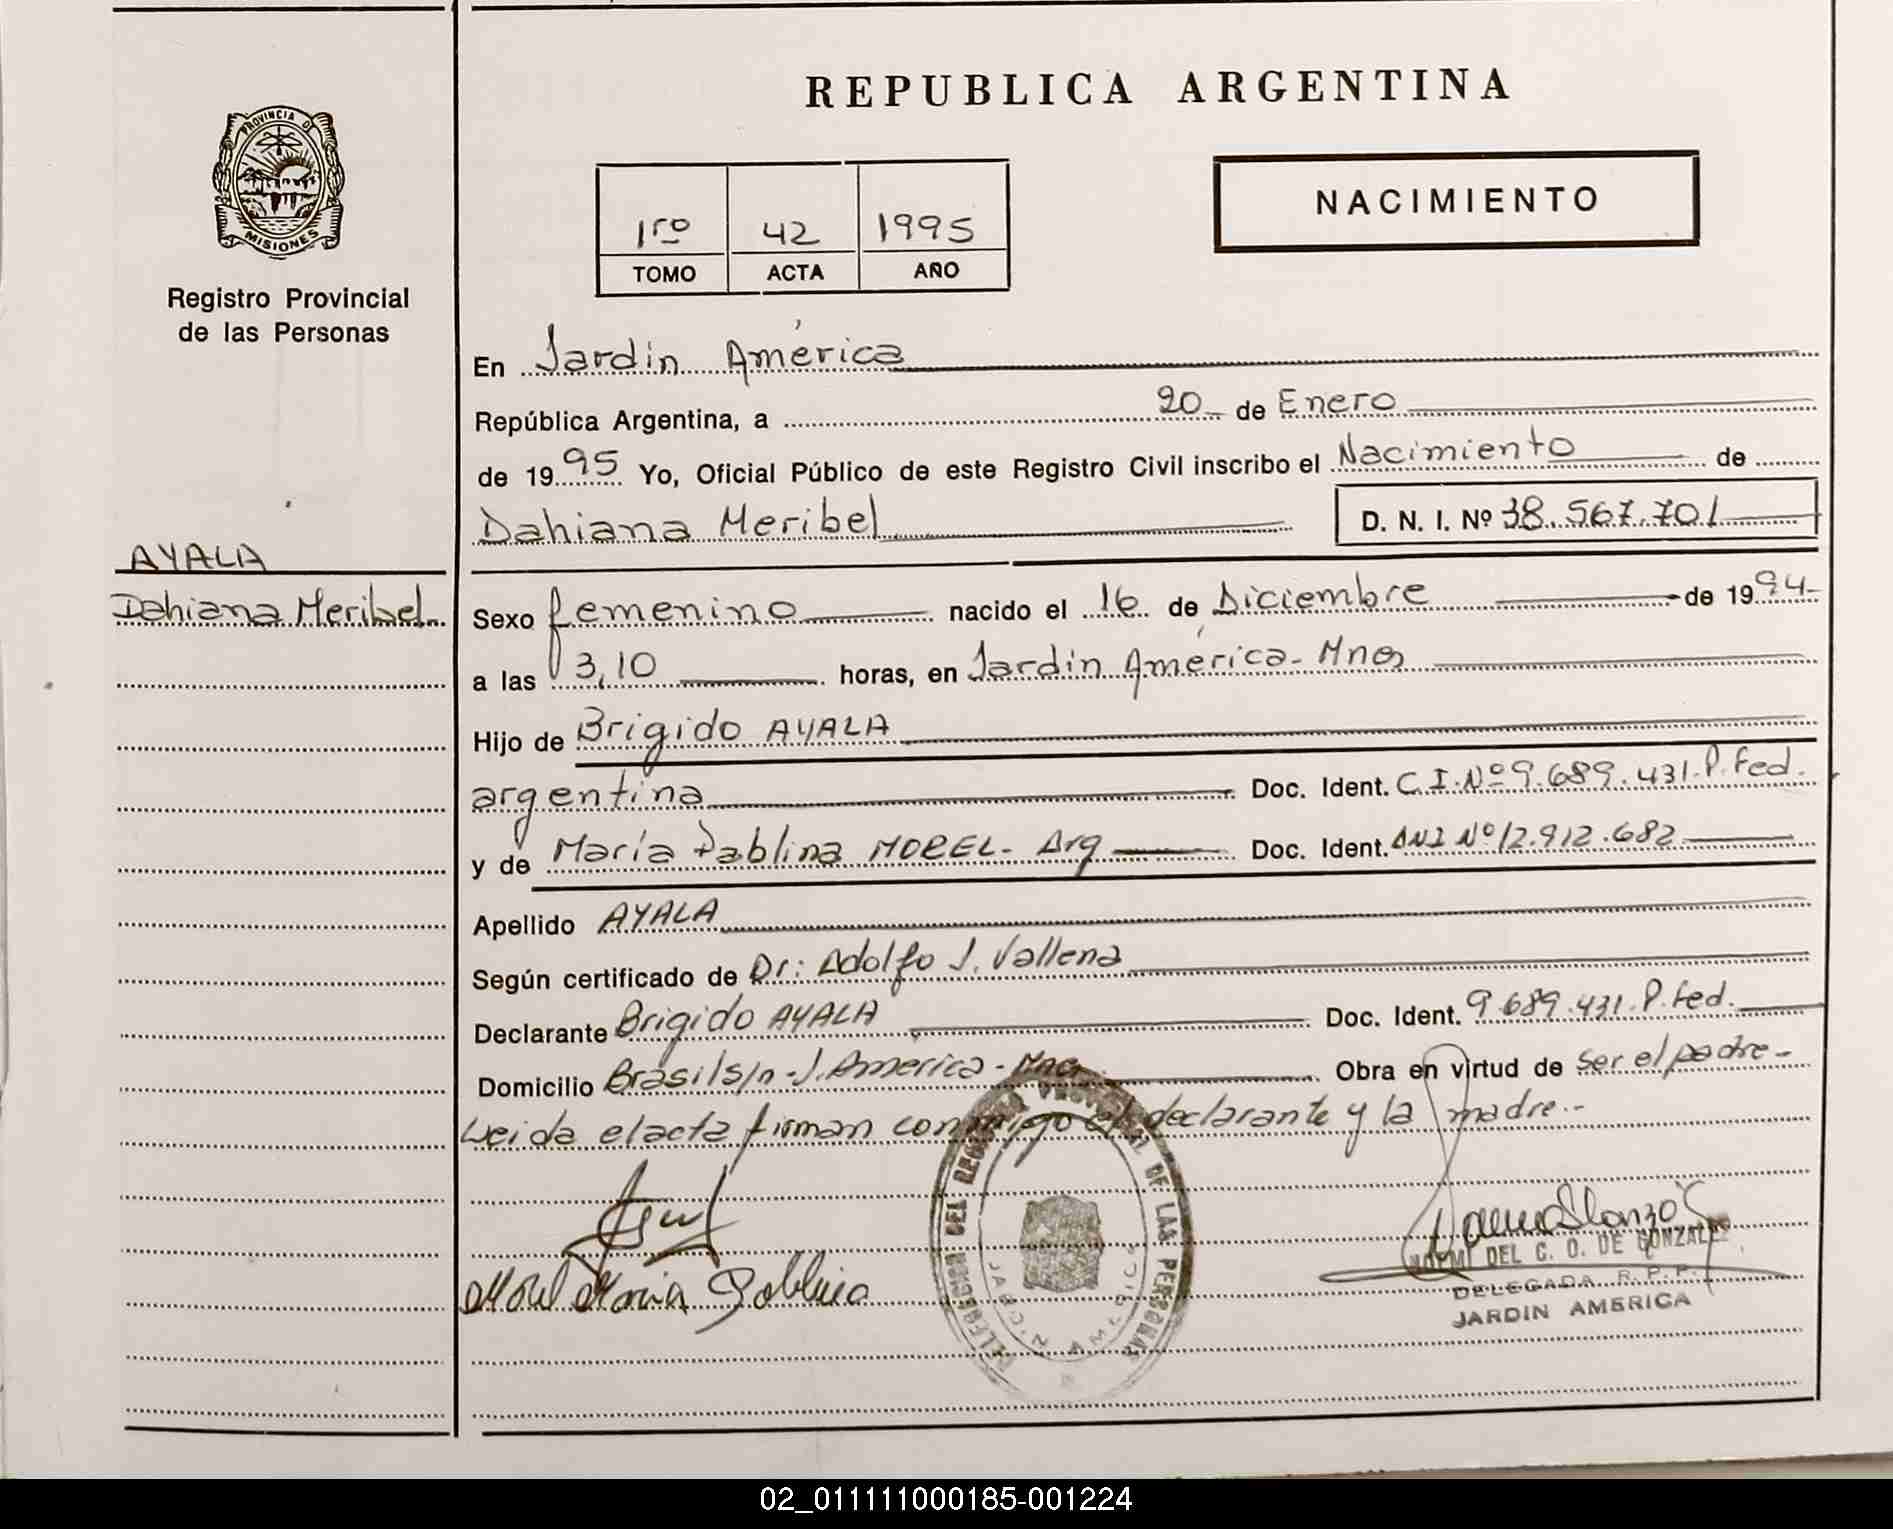 REPUBLICA ARGENTINA
PROVINCIA D
MISIONES
Registro Provincial
de las Personas
1ro 42 1995
TOMO ACTA AÑO
NACIMIENTO
En Jardín América
República Argentina, a 20 de Enero
de 1995 Yo, Oficial Público de este Registro Civil inscribo el Nacimiento de
Dahiana Meribel D. N. I. Nº 38.567.701
AYALA
Dahiana Meribel
Sexo femenino nacido el 16 de Diciembre de 1994
a las 3,10 horas, en Jardín América - Mnes
Hijo de Brigido AYALA
argentina Doc. Ident. C.I. Nº 9.689.431. P. Fed.
y de María Pablina MOREL - Arg Doc. Ident. DNI Nº 12.912.682
Apellido AYALA
Según certificado de Dr: Adolfo J. Vallena
Declarante Brigido AYALA Doc. Ident. 9.689.431. P. Fed.
Domicilio Brasil s/n - J. America - Mnes Obra en virtud de ser el padre -
Leida el acta firman conmigo el declarante y la madre.-
Morel Maria Pablina
DELEGACION DEL REGISTRO PROVINCIAL DE LAS PERSONAS
JARDIN AMERICA
DEL C. D. DE GONZALEZ
DELEGADA R.P.P.
JARDIN AMERICA
02_011111000185-001224